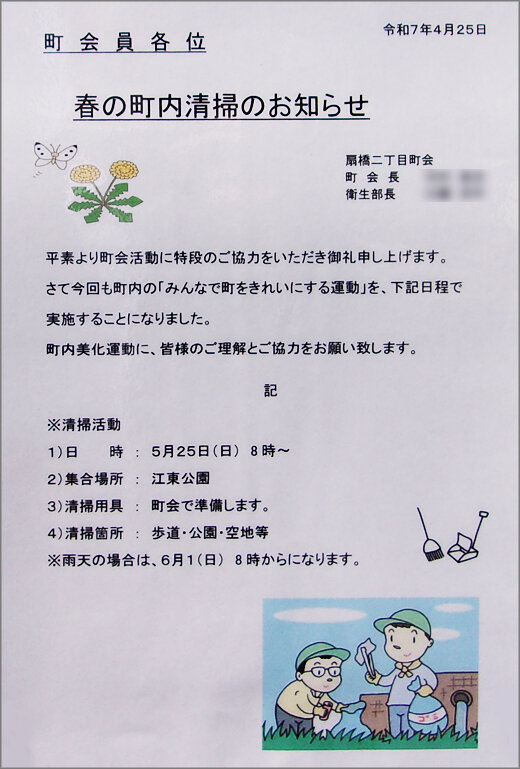 令和7年4月25日
町会員各位
春の町内清掃のお知らせ
扇橋二丁目町会
町会長
衛生部長
平素より町会活動に特段のご協力をいただき御礼申し上げます。
さて今回も町内の「みんなで町をきれいにする運動」を、下記日程で
実施することになりました。
町内美化運動に、皆様のご理解とご協力をお願い致します。
記
※清掃活動
1)日　　時 : 5月25日(日) 8時～
2)集合場所 : 江東公園
3)清掃用具 : 町会で準備します。
4)清掃箇所 : 歩道・公園・空地等
※雨天の場合は、6月1(日) 8時からになります。
ゴミ